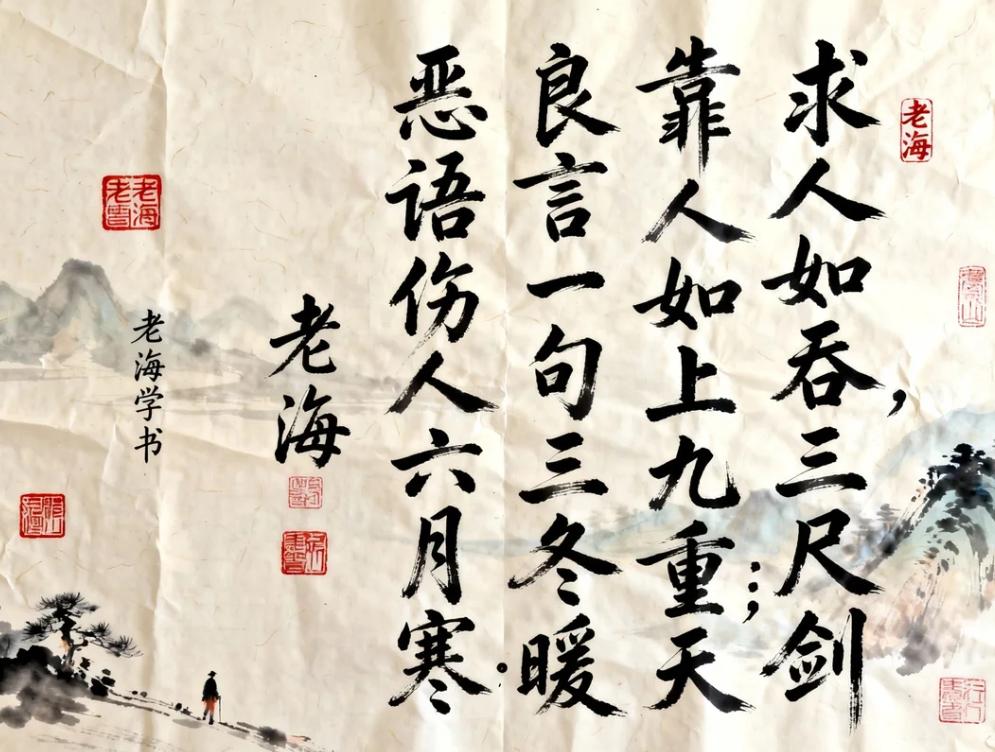 老海
求人如吞三尺剑，
靠人如上九重天；
良言一句三冬暖
恶语伤人六月寒。
老海
老海学书
老海